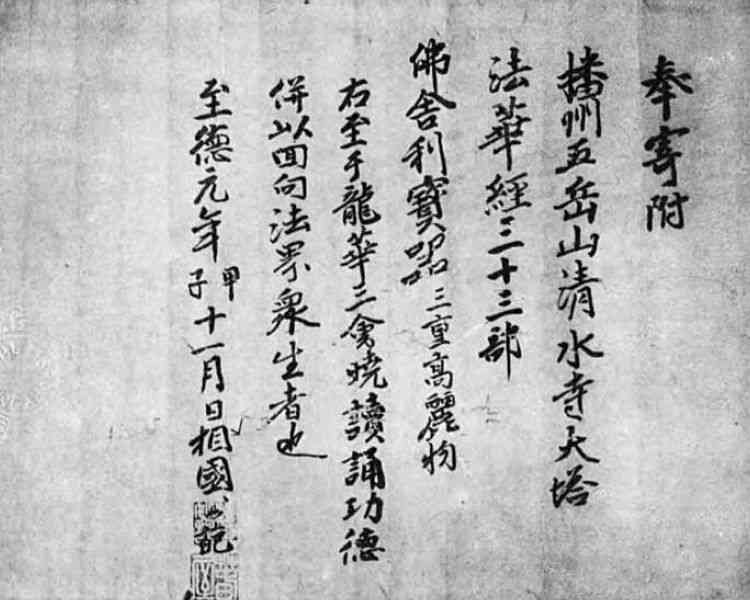 奉寄附
播州五岳山清水寺大塔
法華經三十三部
佛舎利寶器三重高麗物
右至于龍華三會曉讀誦功德
併以回向法界衆生者也
至德元年甲子十一月日相國